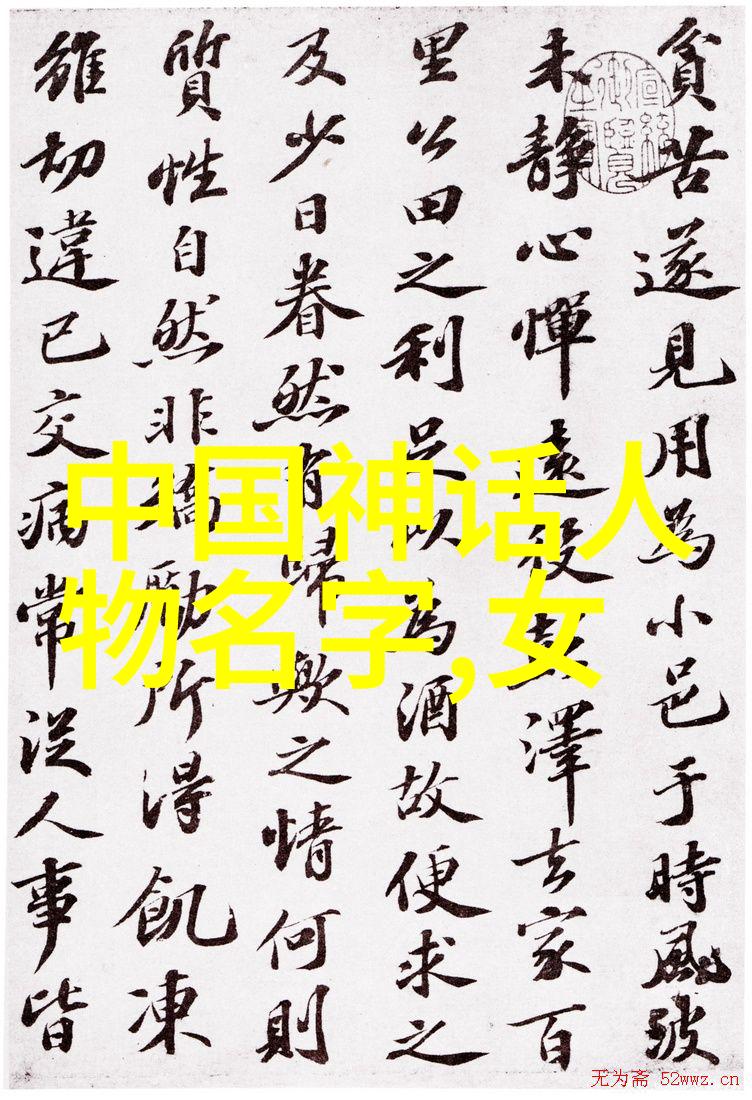 貧苦遂見用為小邑于時風波
未靜心憚遠役彭澤去家百
里公田之利足以為酒故便求之
及少日眷然有歸歟之情何則
質性自然非矯勵所得飢凍
雖切違己交病常從人事皆
中国神话人
物名字,女
无为斋 52wwz.cn